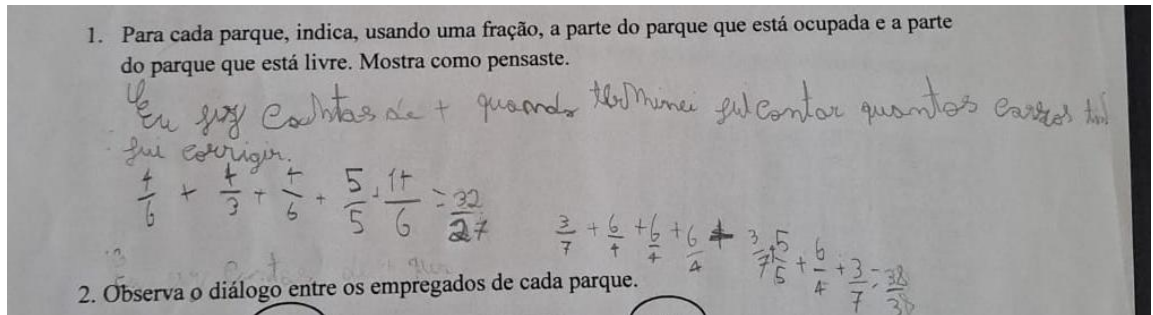 1. Para cada parque, indica, usando uma fração, a parte do parque que está ocupada e a parte
do parque que está livre. Mostra como pensaste.
Eu fiz contas de + quando terminei fui contar quantos carros
fui corrigir.
4/6 + 4/3 + 4/6 + 5/5 + 14/6 = 32/27
3/7 + 6/4 + 6/4 + 6/4 + 3/7 + 5/5 + 6/4 + 3/7 = 38/38
2. Observa o diálogo entre os empregados de cada parque.